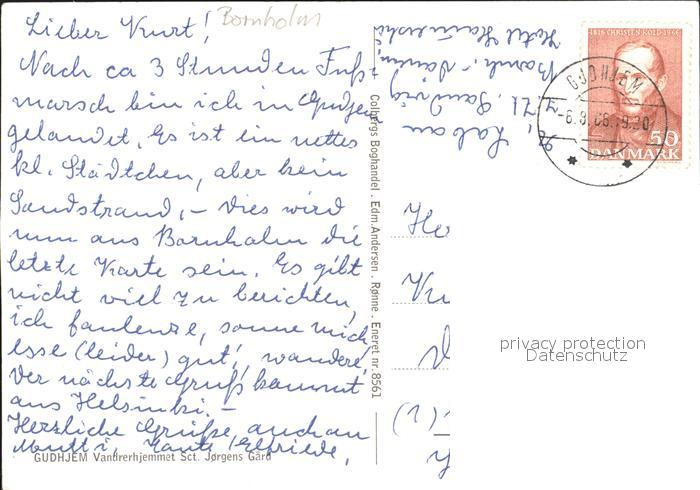 Bornholm
Lieber Kurt!
Nach ca 3 Stunden Fuß-
marsch bin ich in Gudjem
gelandet. Es ist ein nettes
kl. Städtchen, aber kein
Sandstrand, - Dies wird
nun aus Bornholm die
letzte Karte sein. Es gibt
nicht viel zu berichten,
ich faulenze, sonne mich,
esse (leider) gut, wandere.
Der nächste Gruß kommt
aus Helsinki. -
Herzliche Grüße auch an
Mutti, Tante Elfriede,
GUDHJEM Vandrerhjemmet Sct. Jørgens Gård
Colbergs Boghandel . Edm. Andersen . Rønne . Eneret nr. 8561
Hotel
z. Zt. Sandvig
1816 CHRISTEN KOLD 1966
50
DANMARK
GUDHJEM
-6.8.66.19.20
He
Ku
(1)
privacy protection
Datenschutz